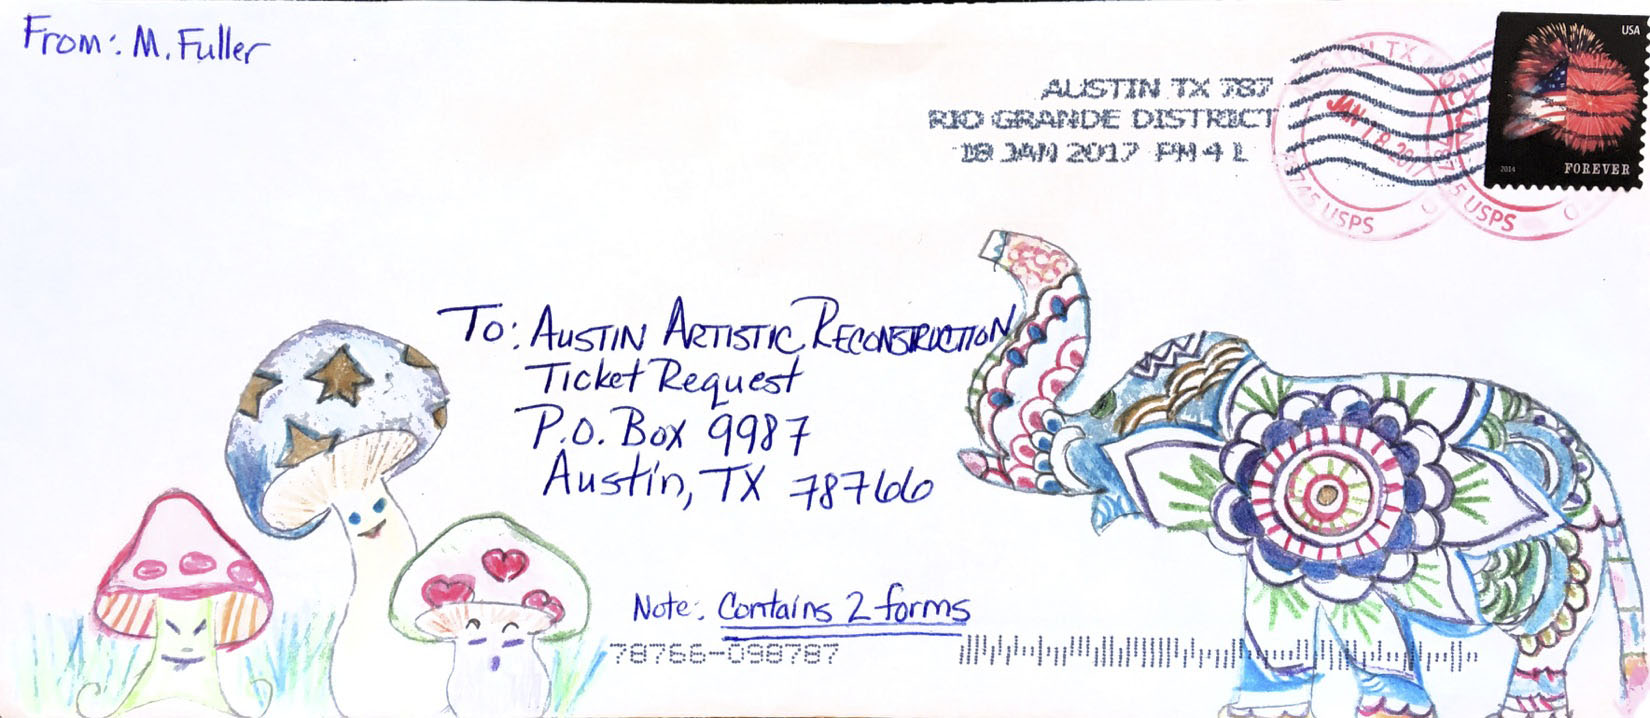 From: M. Fuller
AUSTIN TX 787
RIO GRANDE DISTRICT
18 JAN 2017 PM 4 L
JAN 18 2017
USPS
USPS
USA
2014
FOREVER
To: AUSTIN ARTISTIC RECONSTRUCTION
Ticket Request
P.O. Box 9987
Austin, TX 78766
Note: Contains 2 forms
78766-098787